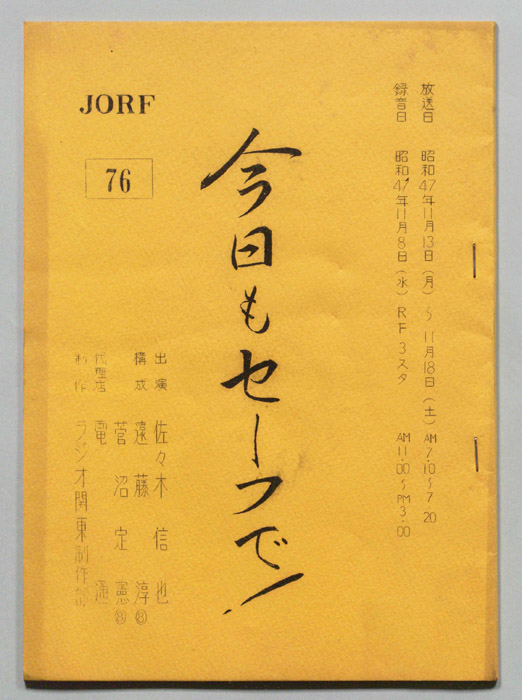 放送日 昭和47年11月13日(月)〜11月18日(土) AM7.10〜7.20
録音日 昭和47年11月8日(水) RF3スタ AM11.00〜PM3.00
今日もセーフで!
JORF
76
出演 佐々木信也
構成 遠藤淳⑧
菅沼定憲⑧
代理店 電通
制作 ラジオ関東制作部